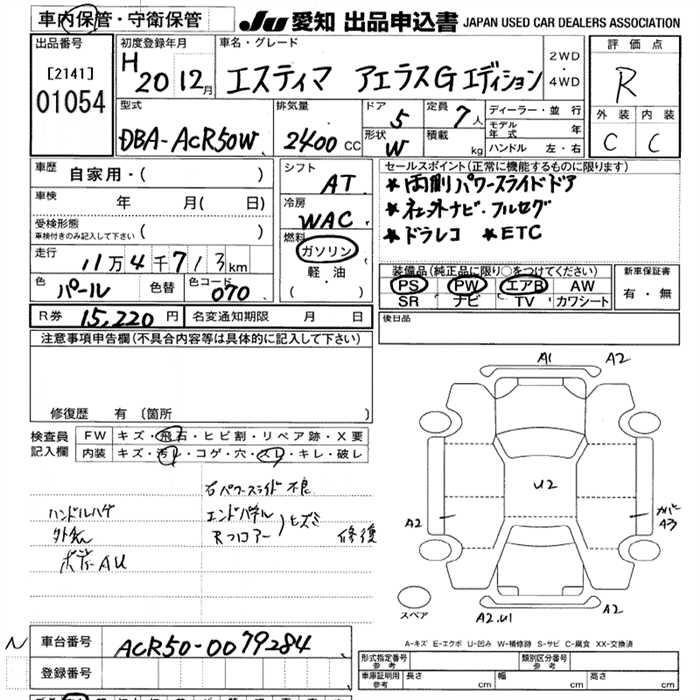 車内保管・守衛保管
JU 愛知 出品申込書 JAPAN USED CAR DEALERS ASSOCIATION
出品番号
[2141]
01054
初度登録年月
H 20 12月
車名・グレード
エスティマ アエラスGエディション
2WD
・
4WD
評価点
R
外装 内装
C C
型式
DBA-ACR50W
排気量
2400 CC
ドア
5
形状
W
定員
7人
積載
kg
ディーラー・並行
モデル年式 年
ハンドル 左・右
車歴
自家用・( )
車検
年 月( 日)
受検形態
車検付きのみ記入して下さい ( )
走行
11万4千713km
色
パール
色替
色コード
070
シフト
AT
冷房
WAC
燃料
ガソリン
軽・油
( ・ )
セールスポイント(正常に機能するものに限ります)
★両側パワースライドドア
★ネットナビ・フルセグ
★ドラレコ ★ETC
装備品(純正品に限り○をつけてください)
PS PW エアB AW
SR ナビ TV カワシート
新車保証書
有・無
R券 15,220円
名変通知期限 月 日
後日品
注意事項申告欄(不具合内容等は具体的に記入して下さい)
修復歴 有 〔箇所
検査員
記入欄
FW キズ・飛石・ヒビ割・リペア跡・X要
内装 キズ・汚れ・コゲ・穴・スレ・キレ・破レ
右パワースライド不良
ハンドルハゲ
エンドパネル
Rフロアー
ヒズミ
修復
ボデーAU
A1 A2
U2
A2
カバー
A3
スペア
A2.U1 A2
A-キズ E-エクボ U-凹み W-補修跡 S-サビ C-腐食 XX-交換済
N
車台番号
ACR50-0079284
登録番号
形式指定番号
参考
類別区分番号
参考
車庫証明用
参考
長さ cm 幅 cm 高さ cm